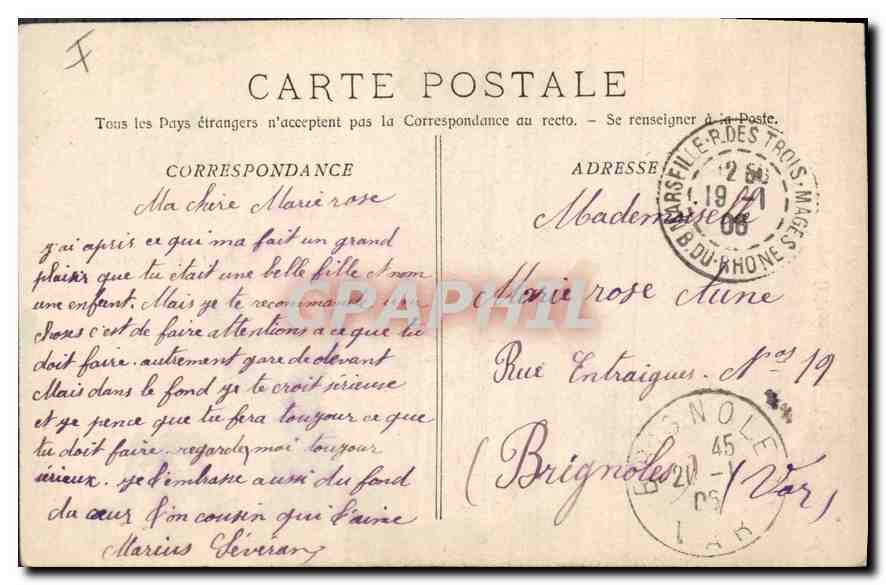 CARTE POSTALE
Tous les Pays étrangers n'acceptent pas la Correspondance au recto. - Se renseigner à la Poste.
CORRESPONDANCE
Ma chère Marie rose
j'ai apris ce qui ma fait un grand
plaisir que tu était une belle fille et nom
une enfant. Mais je te recommande une
choses c'est de faire attentions a ce que tu
doit faire. autrement gare de devant
Mais dans le fond je te croit sérieuse
et je pence que tu fera toujour ce que
tu doit faire. regarde moi toujour
sérieux. je t'embrasse aussi du fond
du cœur t'on cousin qui t'aime
Marius Séveran
ADRESSE
Mademoiselle
Marie rose Aune
Rue Entraigues. Nos 19
(Brignoles) (Var)
MARSEILLE-R. DES TROIS-MAGES
19 -1
06
B. DU-RHONE
BRIGNOLES
45
20 -1
06
VAR
GRAPHIL